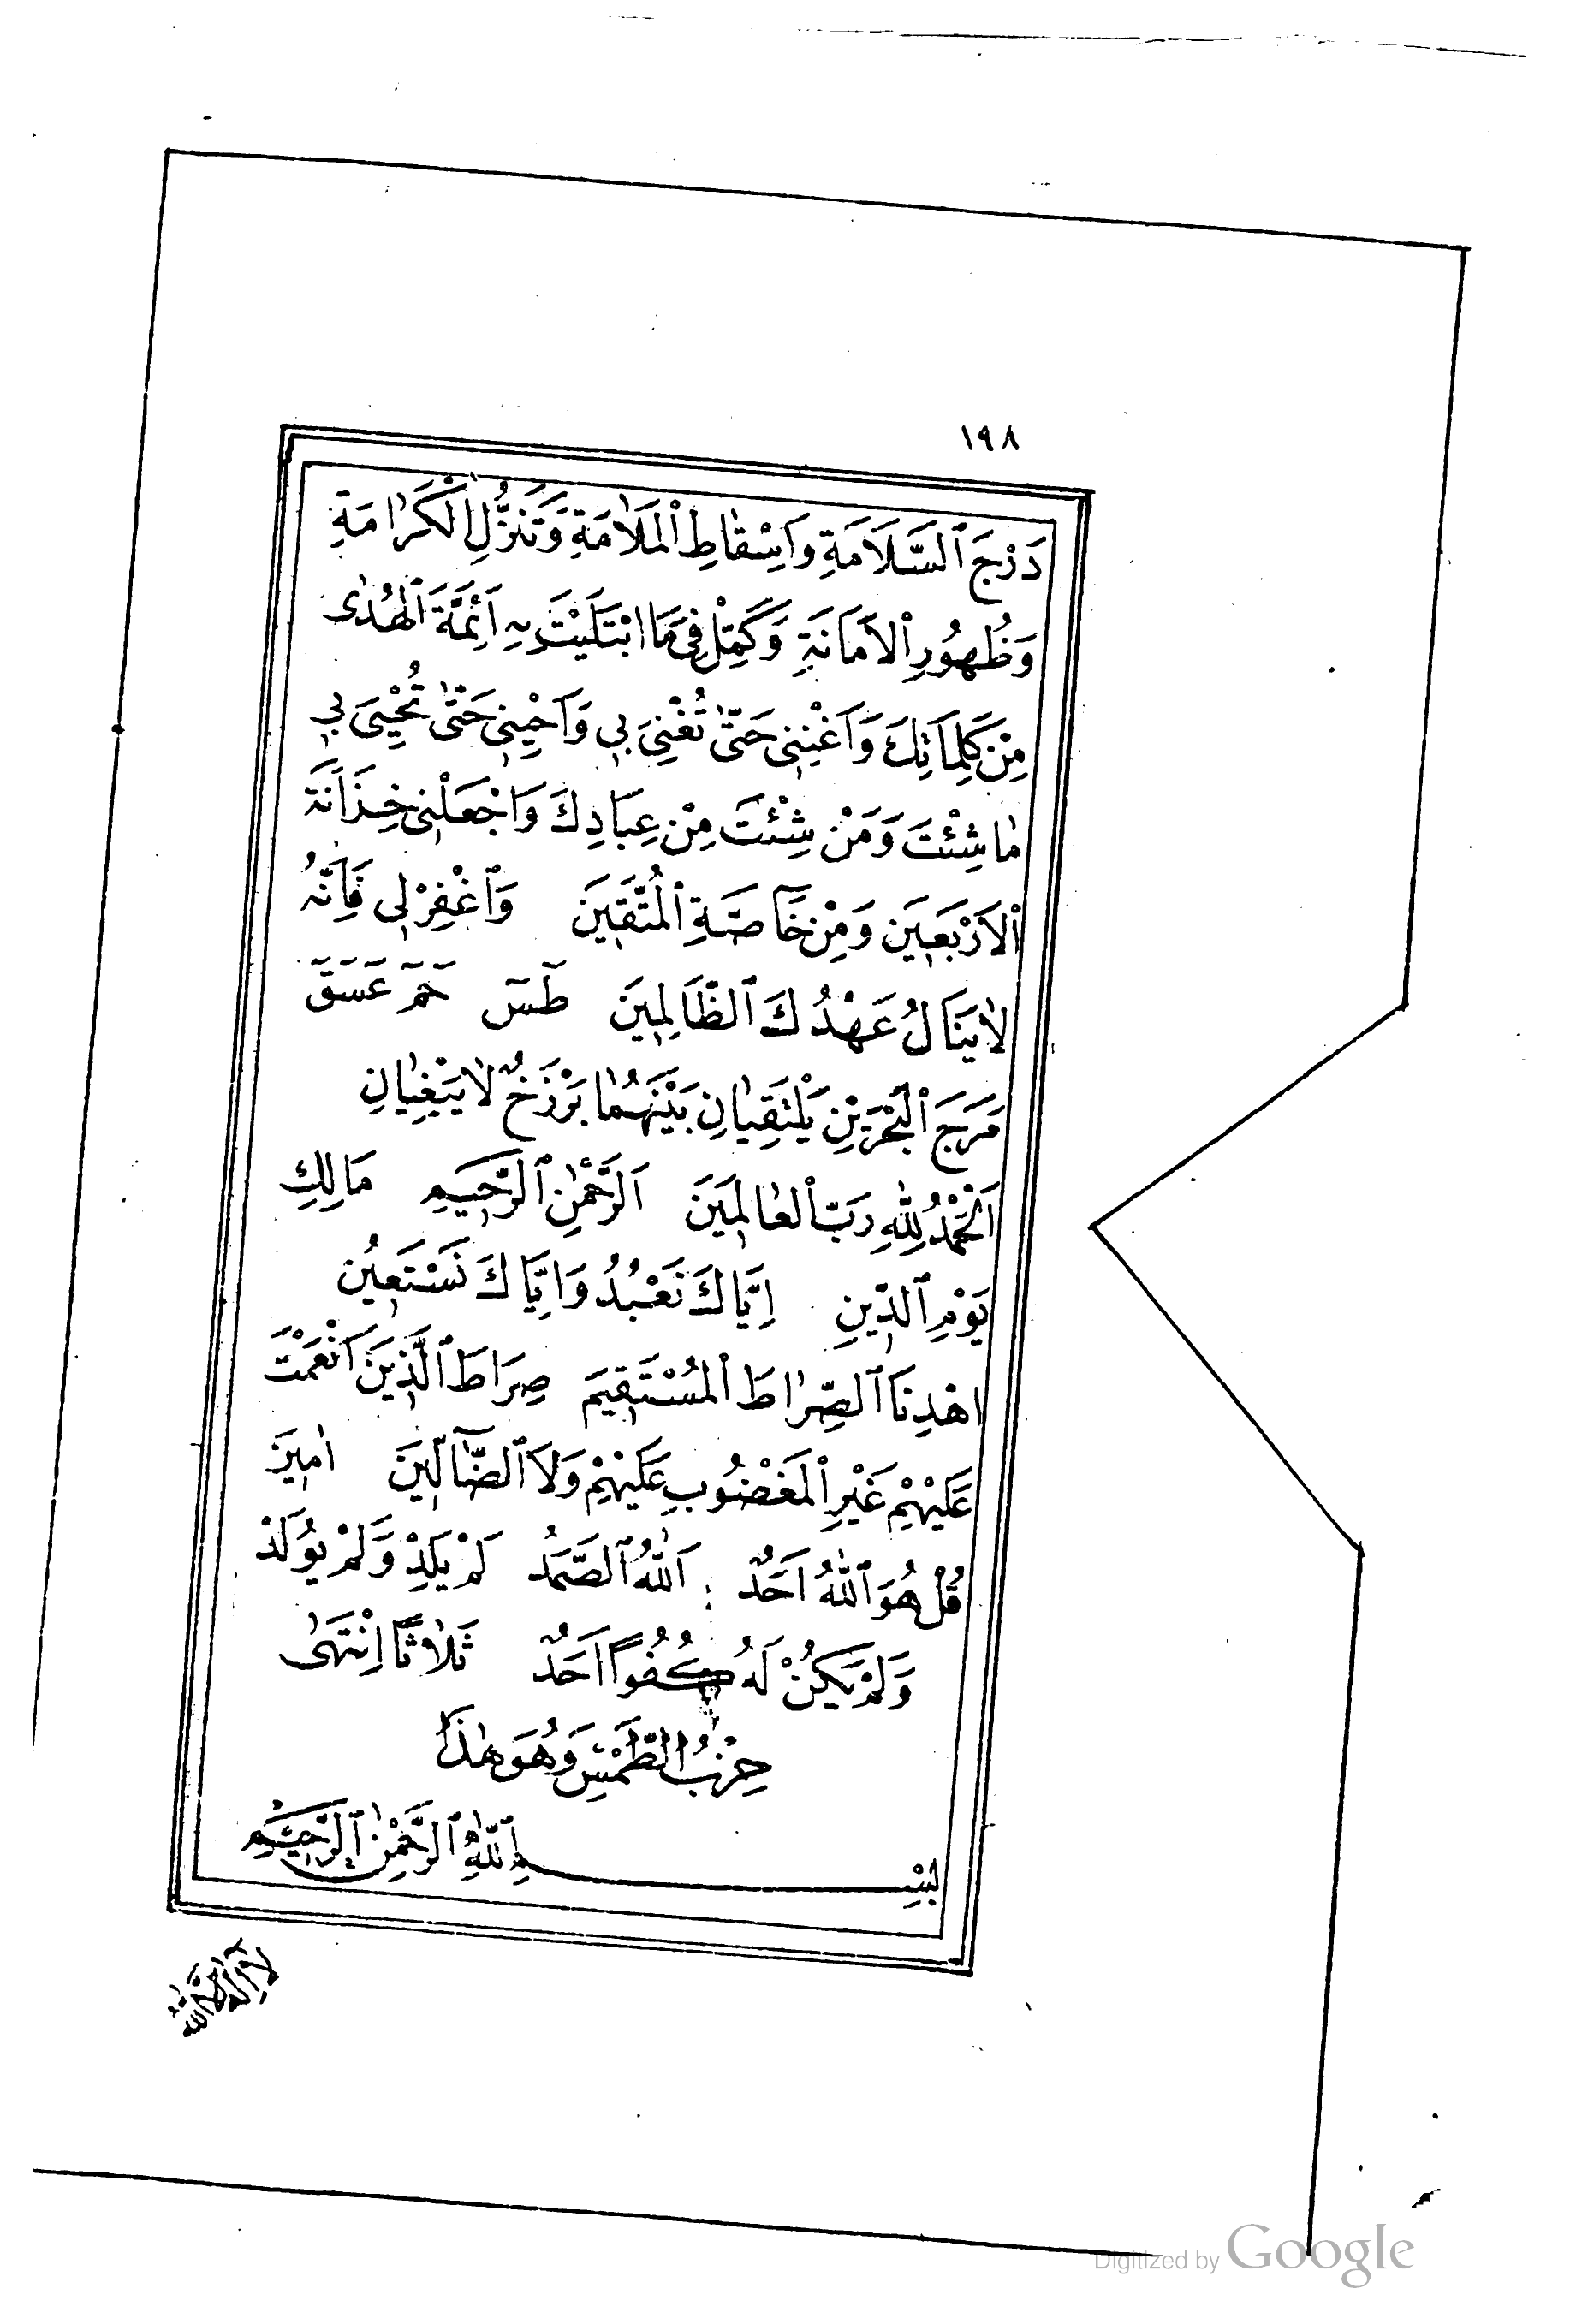 ١٩٨
دَرْجَ ٱلسَّلَامَةِ وَاَسِقْاطِ ٱلْمَلَامَةِ وَتَنَزُّلِ ٱلْكَرٰامَةِ
وَظُهُورِ ٱلْاَمَانَةِ وَكَمِّلْ فِيَّ مَا ابْتَلَيْتَ بِهِ اَئِمَّةَ ٱلْهُدٰى
مِنْ كَلِمَاتِكَ وَاَغْنِنِي حَتّٰى تُغْنِيَ بِي وَاَحْيِنِي حَتّٰى تُحْيِيَ بِي
مٰا شِئْتَ وَمَنْ شِئْتَ مِنْ عِبَادِكَ وَاجْعَلْنِي خِزَانَةَ
ٱلْاَرْبَعِينَ وَمِنْ خَآصَّةِ ٱلْمُتَّقِينَ وَٱغْفِرْ لِي فَاِنَّهُ
لَا يَنَالُ عَهْدُكَ ٱلظَّالِمِينَ طٓسٓ حٓمٓ عٓسٓقٓ
مَرَجَ ٱلْبَحْرَيْنِ يَلْتَقِيٰانِ بَيْنَهُمٰا بَرْزَخٌ لٰا يَبْغِيٰانِ
اَلْحَمْدُ لِلّٰهِ رَبِّ ٱلْعٰالَمِينَ اَلرَّحْمٰنِ ٱلرَّحِيمِ مَالِكِ
يَوْمِ ٱلدِّينِ اِيَّاكَ نَعْبُدُ وَاِيَّاكَ نَسْتَعِينُ
اهْدِنَا ٱلصِّرٰاطَ ٱلْمُسْتَقِيمَ صِرَاطَ ٱلَّذِينَ اَنْعَمْتَ
عَلَيْهِمْ غَيْرِ ٱلْمَغْضُوبِ عَلَيْهِمْ وَلَا ٱلضَّآلِّينَ اٰمِينَ
قُلْ هُوَ ٱللّٰهُ اَحَدٌ اَللّٰهُ ٱلصَّمَدُ لَمْ يَلِدْ وَلَمْ يُولَدْ
وَلَمْ يَكُنْ لَهُ كُفُواً اَحَدٌ ثَلٰاثًا اِنْتَهٰى
حِزْبُ الطَّمْسِ وَهُوَ هٰذَا
بِسْمِ ٱللّٰهِ ٱلرَّحْمٰنِ ٱلرَّحِيمِ
لَا اِلٰهَ اِلَّا اللّٰهُ
Digitized by Google